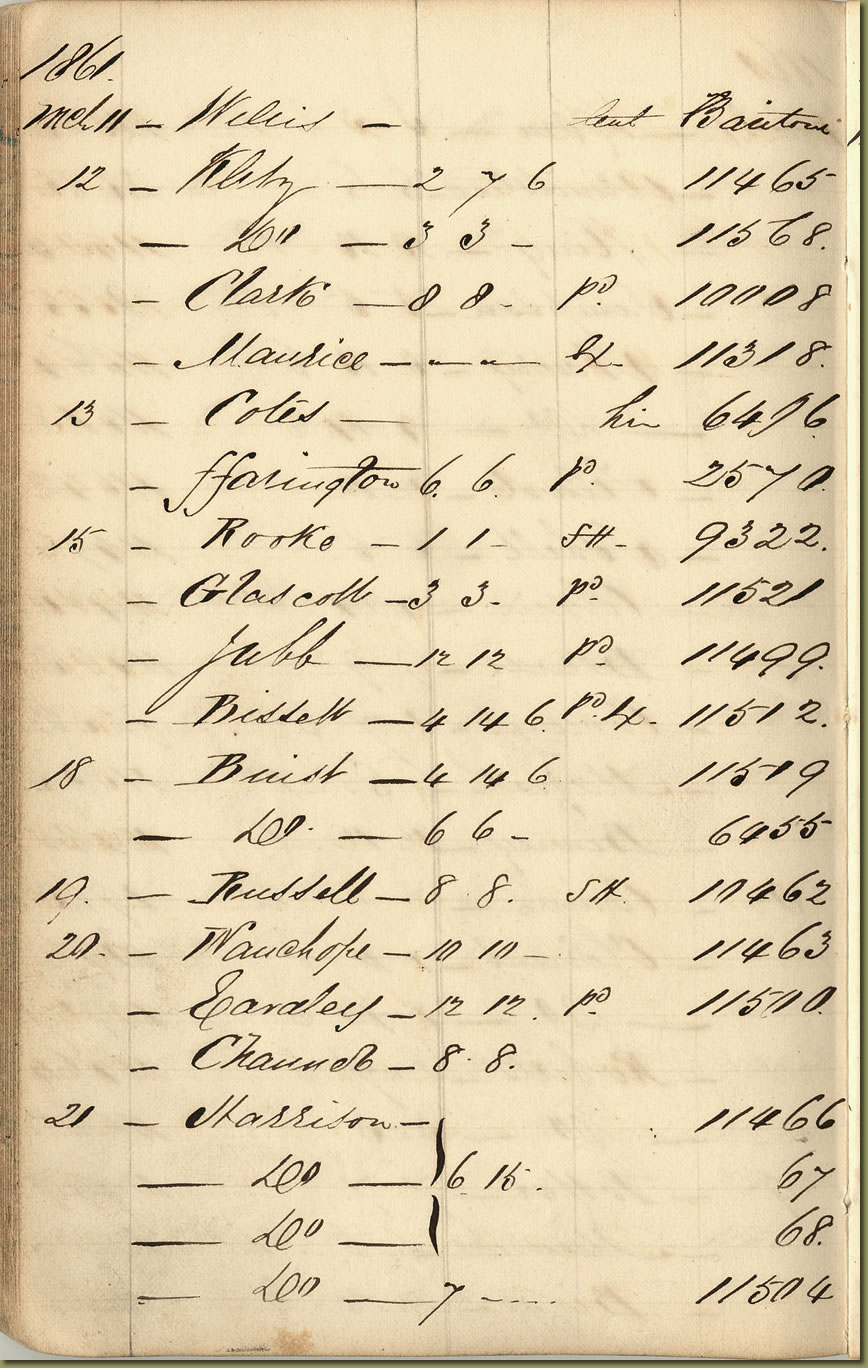 1861.
Mch 11 — Willis — lent
12 — 2 7 6 11465
— Do — 3 3 - 11568.
— Clark — 8 8 - pd. 10008
— Maurice — — — Ex- 11318.
13 — Cotes — 6496.
— ffarington 6. 6. pd. 2570.
15 — Rooke — 1 1 - SH - 9322.
— Glascott — 3 3 - pd. 11521
— Jubb — 12 12 pd. 11499.
— Bissett — 4 14 6. pd. Ex. - 11512.
18 — Buist — 4 14 6. 11509
— Do. — 6 6 - 6455
19. — Russell — 8 8. SH. 10462
20. — Wauchope — 10 10 — 11463
— Eardley — 12 12. pd. 11500.
— — 8. 8.
21 — Harrison — 11466
— Do — 6 15. 67
— Do — 68.
— Do — 7 - .... 11504